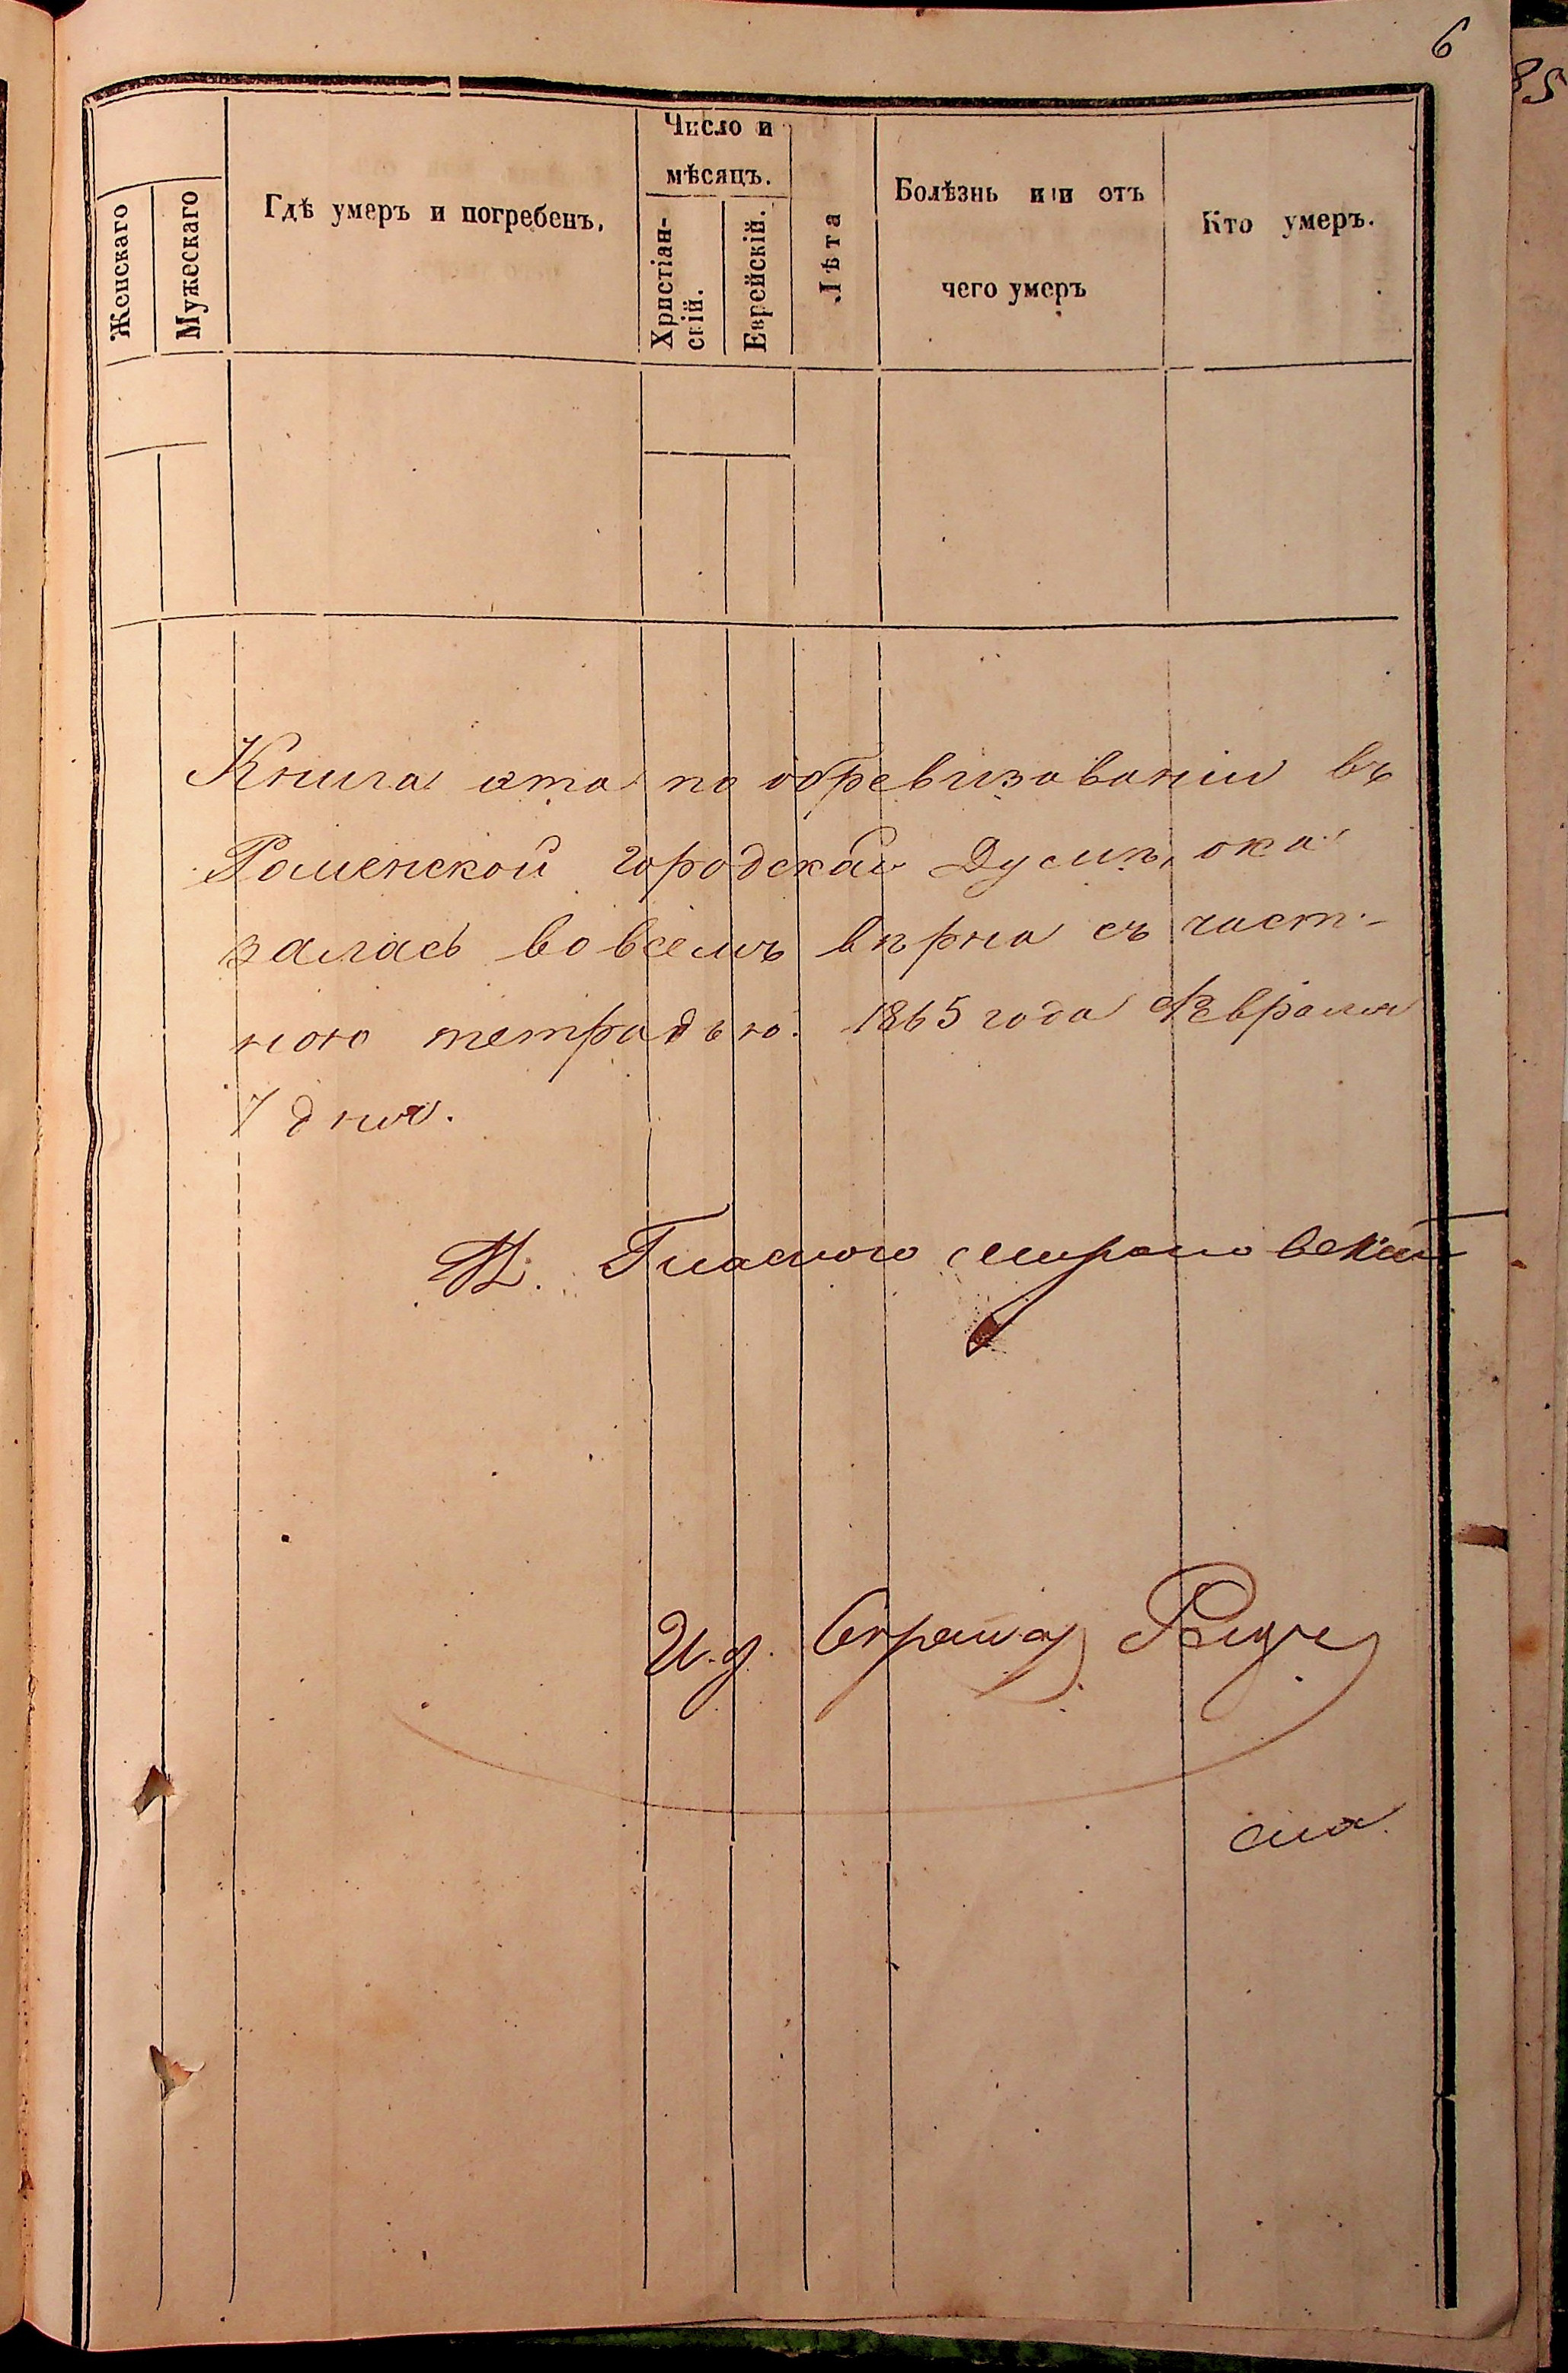 6
85
Число и
мѣсяцъ.
Женскаго
Мужескаго
Гдѣ умеръ и погребенъ.
Христіан-
скій.
Еврейскій.
Лѣта
Болѣзнь или отъ
чего умеръ
Кто умеръ.
Книга эта по обревизованіи въ
Роменской городской Думѣ, ока
залась во всемъ вѣрна съ част-
ною тетрадью. 1865 года Февраля
7 дня.
Гласного
И. д. Секретаря